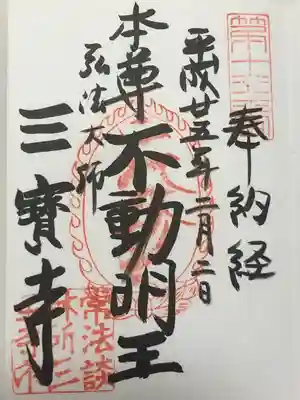 奉納経
平成廿五年二月二日
本尊不動明王
弘法大師
三寳寺